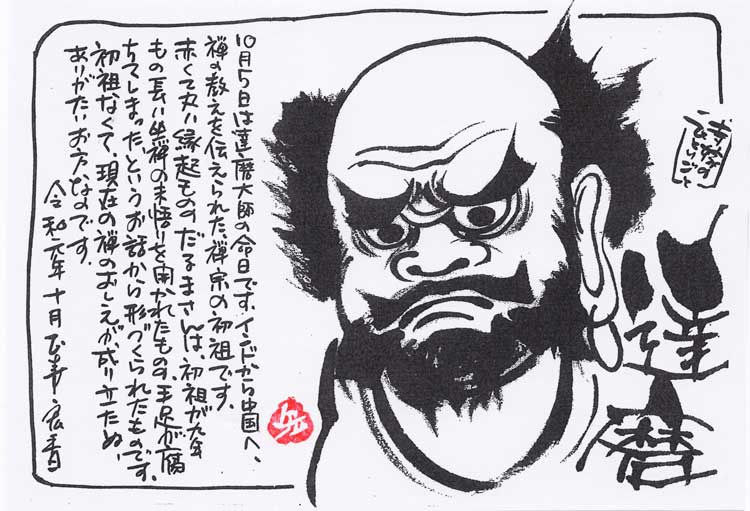 寺嫁の
ひとりごと
達磨
10月5日は達磨大師の命日です。インドから中国へ、
禅の教えを伝えられた、禅宗の初祖です。
赤くて丸い縁起もののだるまさんは、初祖が九年
もの長い坐禅の末悟りを開かれたもの、手足が腐
ちてしまった、というお話から形づくられたものです。
初祖なくて、現在の禅のおしえが成り立たぬ、
ありがたいお方なのです。
令和元年十月